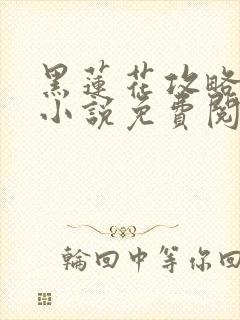 黑蓮花攻略
小說免費閱
輪回中等你回